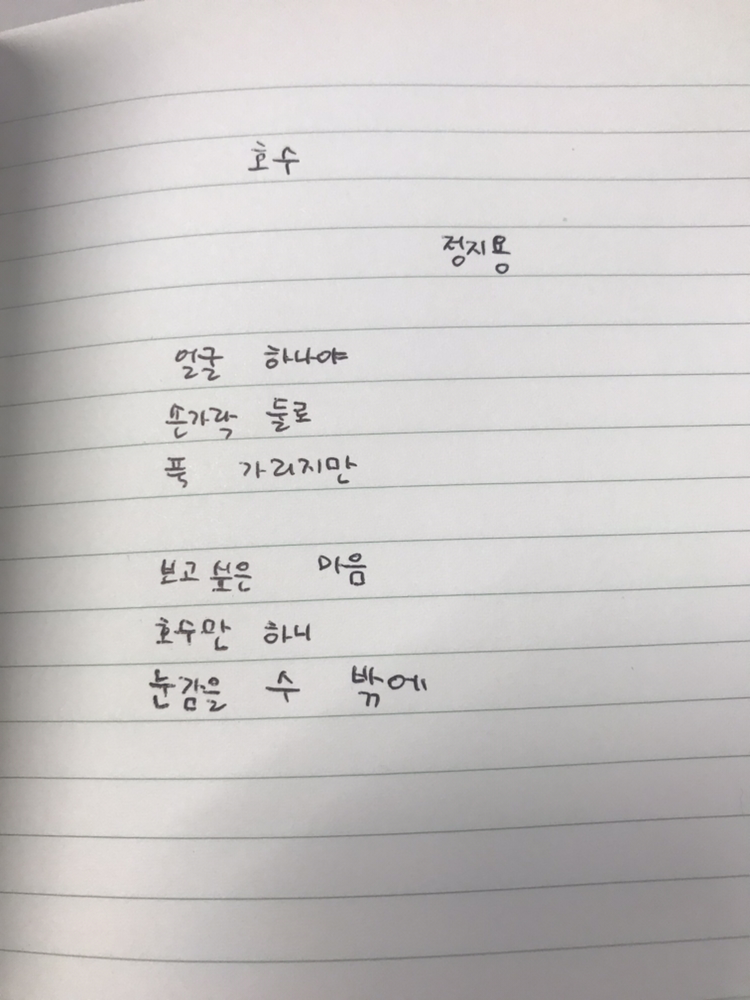 호수
정지용
얼굴 하나야
손가락 둘로
푹 가리지만
보고싶은 마음
호수만 하니
눈감을 수 밖에